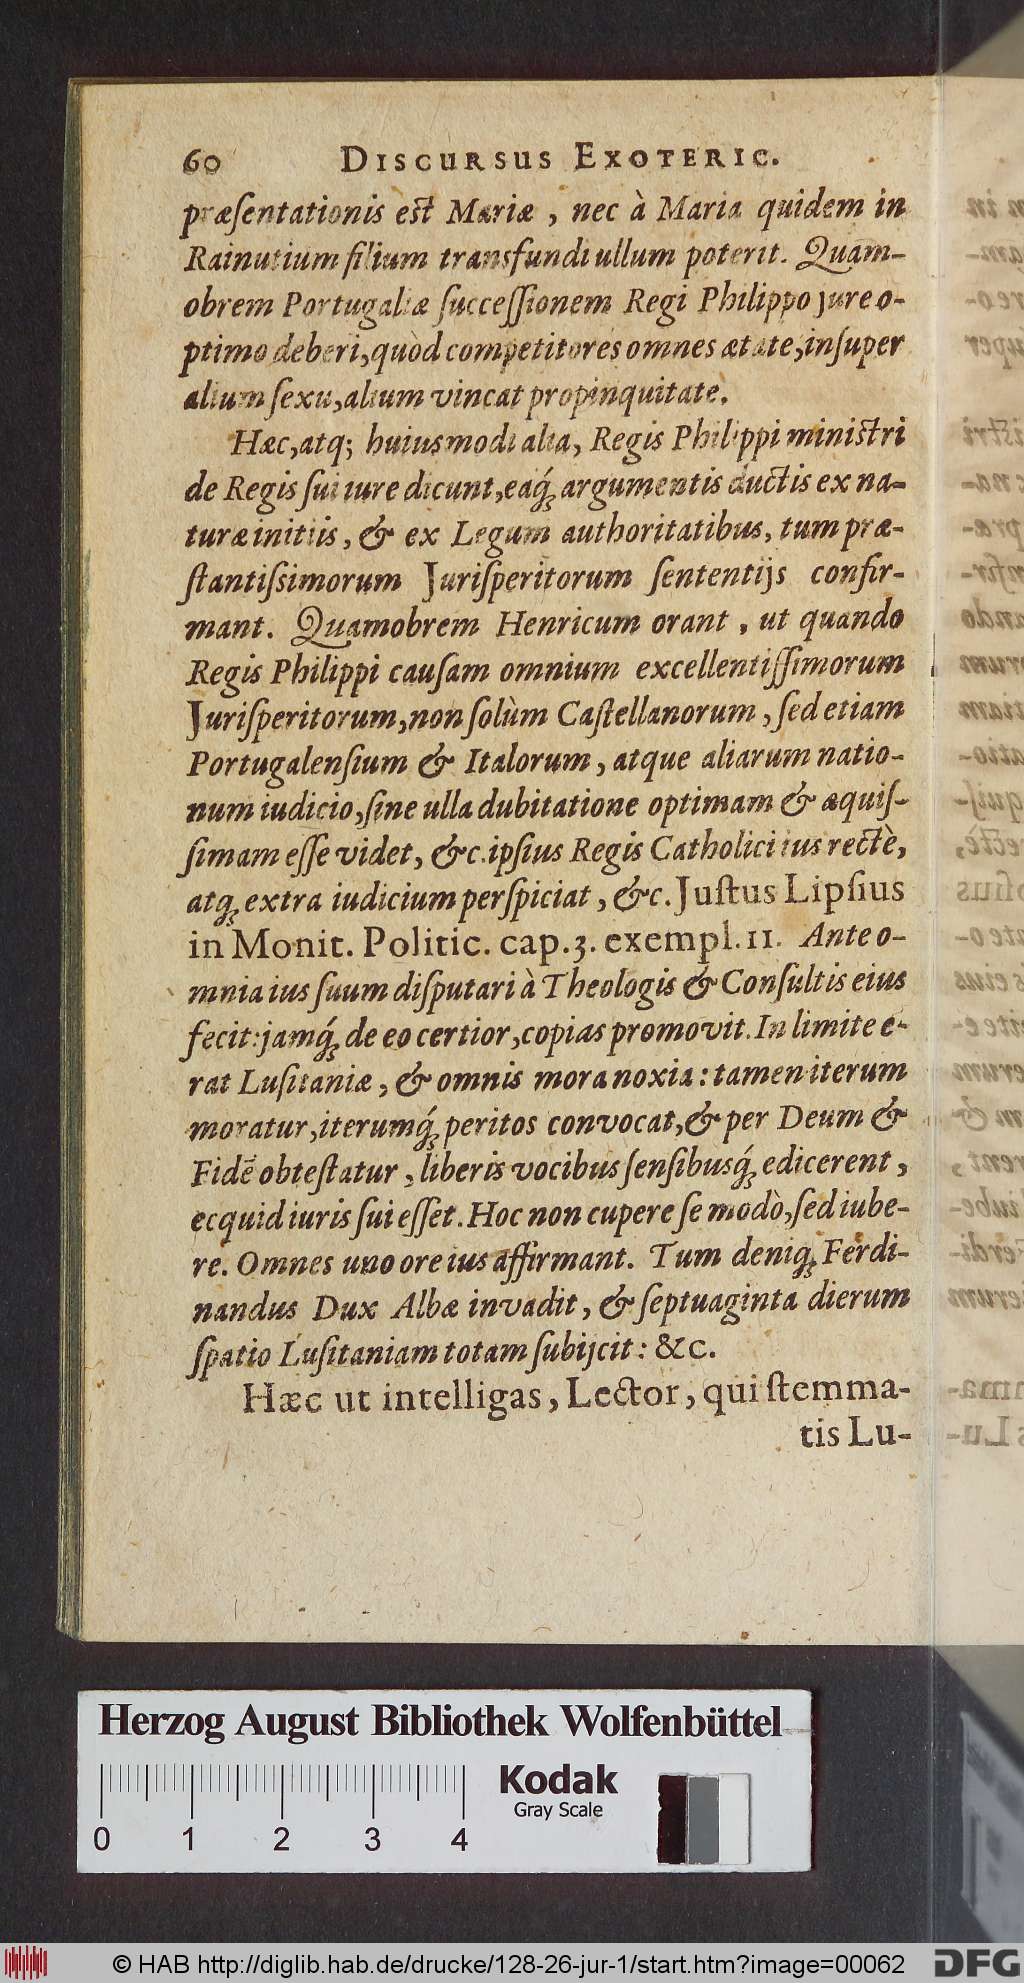 60 DISCURSUS EXOTERIC.
præſentationis eſt Mariæ, nec à Maria quidem in
Rainutium filium transfundi ullum poterit. Quam-
obrem Portugaliæ ſucceſſionem Regi Philippo jure o-
ptimo deberi, quòd competitores omnes ætate, inſuper
alium ſexu, alium vincat propinquitate.
Hæc, atq; huiusmodi alia, Regis Philippi miniſtri
de Regis ſui iure dicunt, eaq́ꝫ argumentis ductis ex na-
turæ initiis, & ex Legum authoritatibus, tum præ-
ſtantiſsimorum Juriſperitorum ſententijs confir-
mant. Quamobrem Henricum orant, ut quando
Regis Philippi cauſam omnium excellentiſſimorum
Juriſperitorum, non ſolùm Caſtellanorum, ſed etiam
Portugalenſium & Italorum, atque aliarum natio-
num iudicio, ſine ulla dubitatione optimam & æquiſ-
ſimam eſſe videt, &c. ipſius Regis Catholici ius rectè,
atqꝫ extra iudicium perſpiciat, &c. Juſtus Lipſius
in Monit. Politic. cap. 3. exempl. 11. Ante o-
mnia ius ſuum diſputari à Theologis & Conſultis eius
fecit: jamq́ꝫ de eo certior, copias promovit. In limite e-
rat Luſitaniæ, & omnis mora noxia: tamen iterum
moratur, iterumq́ꝫ peritos convocat, & per Deum &
Fidē obteſtatur, liberis vocibus ſenſibusq́ꝫ edicerent,
ecquid iuris ſui eſſet. Hoc non cupere ſe modò, ſed iube-
re. Omnes uno ore ius affirmant. Tum deniqꝫ Ferdi-
nandus Dux Albæ invadit, & ſeptuaginta dierum
ſpatio Luſitaniam totam ſubijcit: &c.
Hæc ut intelligas, Lector, qui ſtemma-
tis Lu-
Herzog August Bibliothek Wolfenbüttel
Kodak
Gray Scale
0 1 2 3 4
© HAB http://diglib.hab.de/drucke/128-26-jur-1/start.htm?image=00062
DFG